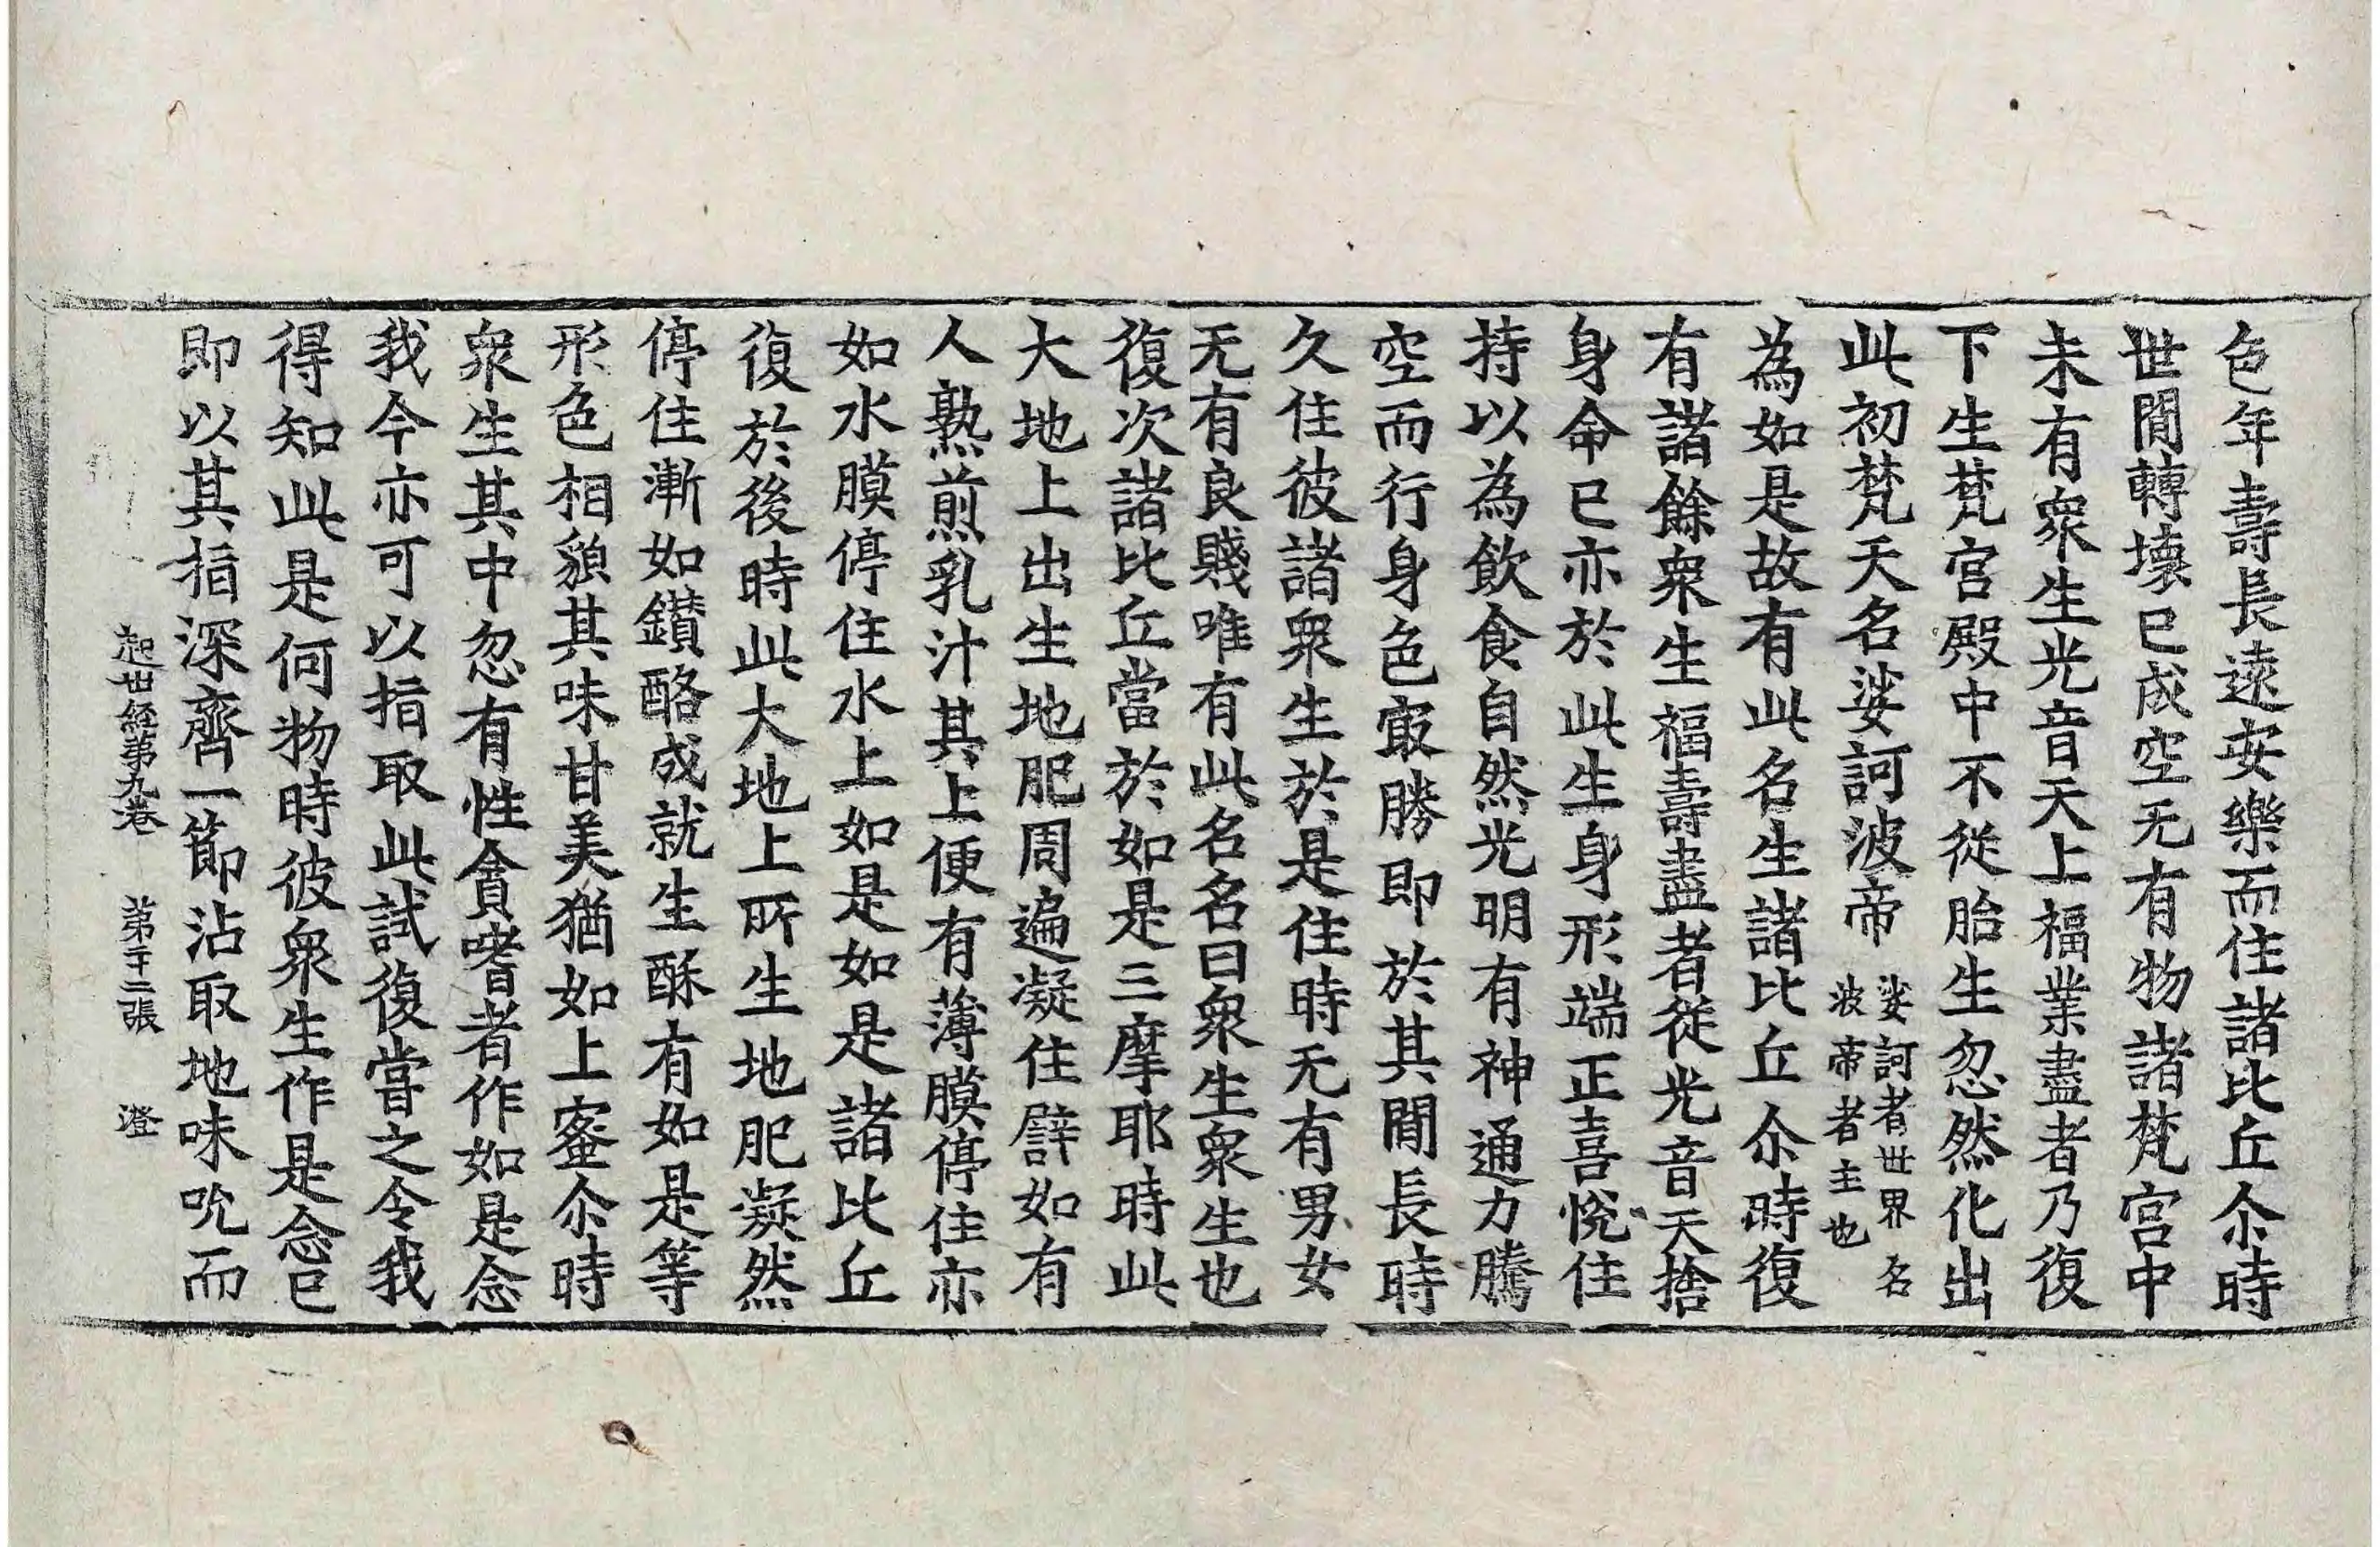 色年壽長遠安樂而住諸比丘尒時
世閒轉壞已成空无有物諸梵宮中
未有衆生光音天上福業盡者乃復
下生梵宮殿中不從胎生忽然化出
此初梵天名娑訶波帝娑訶者世界名波帝者主也
為如是故有此名生諸比丘尒時復
有諸餘衆生福壽盡者從光音天捨
身命已亦於此生身形端正喜悅住
持以為飲食自然光明有神通力騰
空而行身色㝡勝即於其閒長時
久住彼諸衆生於是住時无有男女
无有良賤唯有此名名曰衆生衆生也
復次諸比丘當於如是三摩耶時此
大地上出生地肥周遍凝住譬如有
人熟煎乳汁其上便有薄膜停住亦
如水膜停住水上如是如是諸比丘
復於後時此大地上所生地肥凝然
停住漸如鑚酪成就生酥有如是等
形色相貌其味甘美猶如上蜜尒時
衆生其中忽有性貪嗜者作如是念
我今亦可以指取此試復嘗之令我
得知此是何物時彼衆生作是念已
即以其指深齊一節沾取地味吮而
起世経第九卷　第十二張　澄